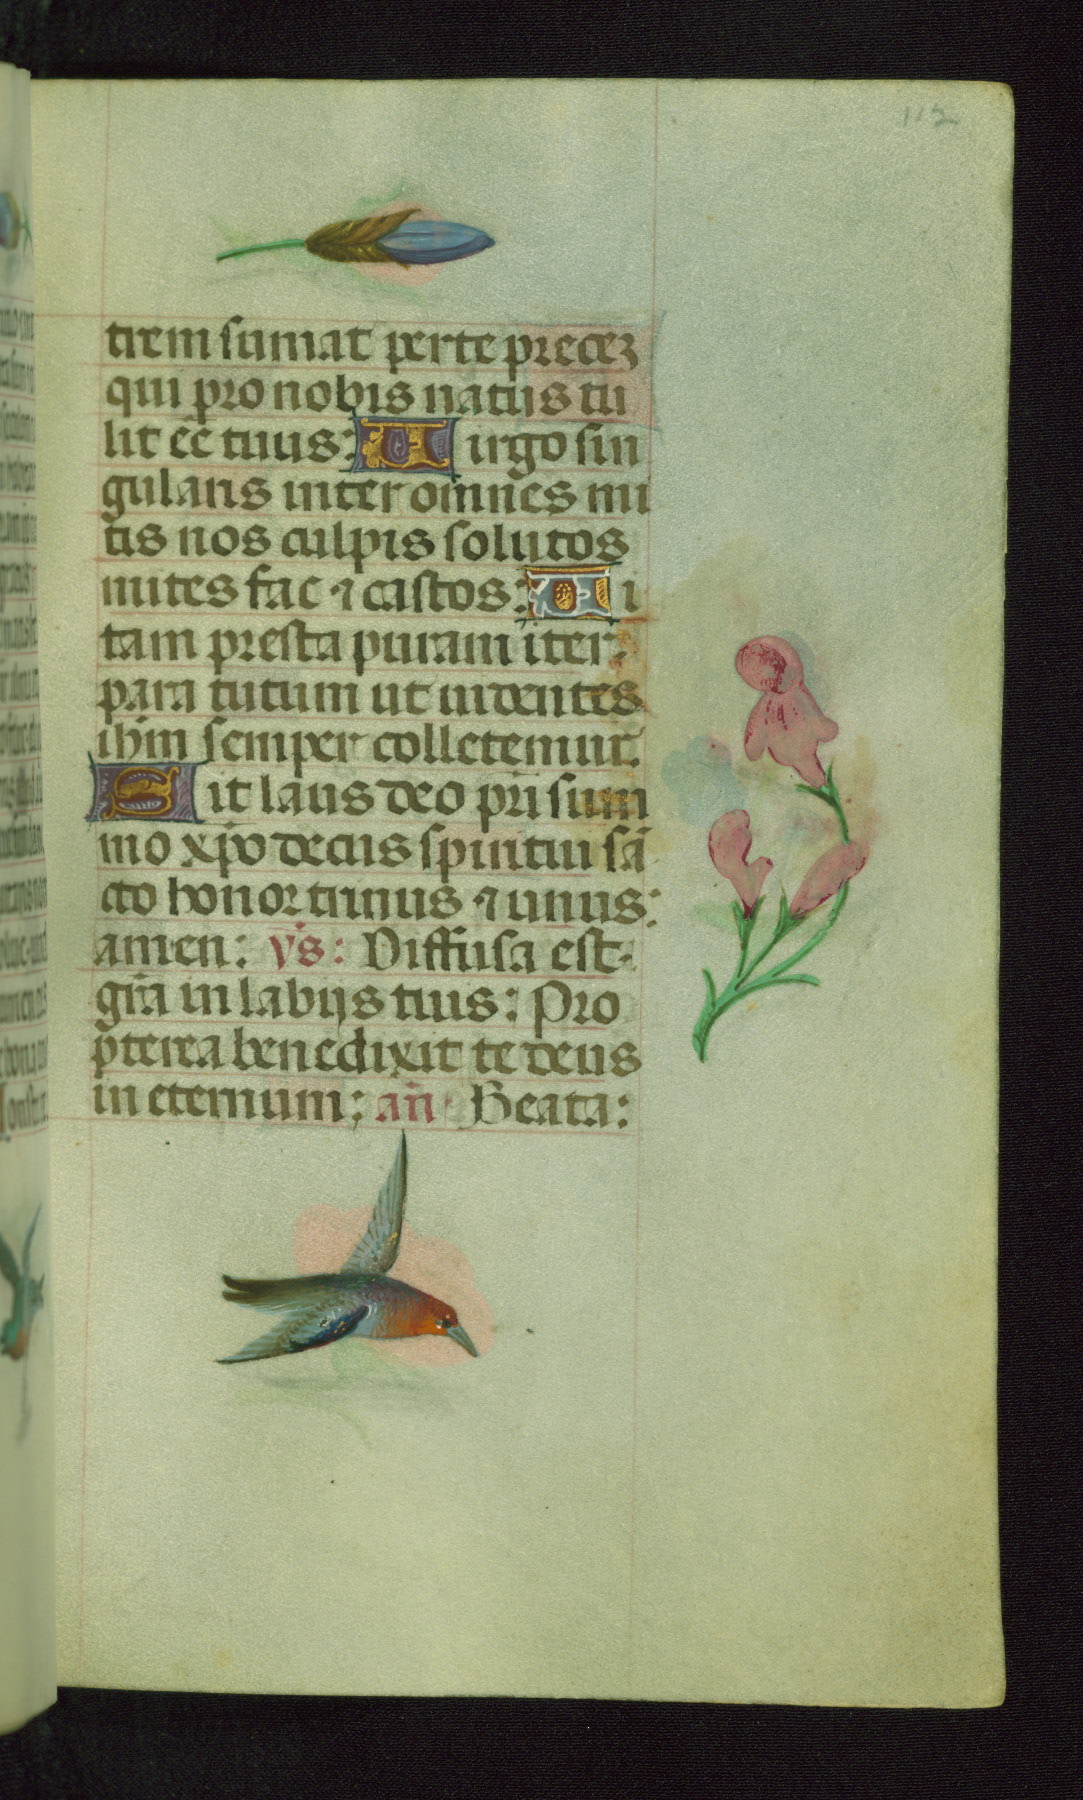 112
trem sumat per te precez
qui pro nobis natus tu
lit ēē tuus: Virgo sin
gularis inter omnes mi
tis nos culpis solutos
mites fac ⁊ castos: Vi
tam presta puram iter
para tutum ut uidentes
ihm̄ semper colletemur.
Sit laus deo pri sum
mo xp̄o decus spiritui sā
cto honor trinus ⁊ unus:
amen: vs: Diffusa est
grā in labijs tuis: Pro
pterea benedixit te deus
in eternum: añ Beata: